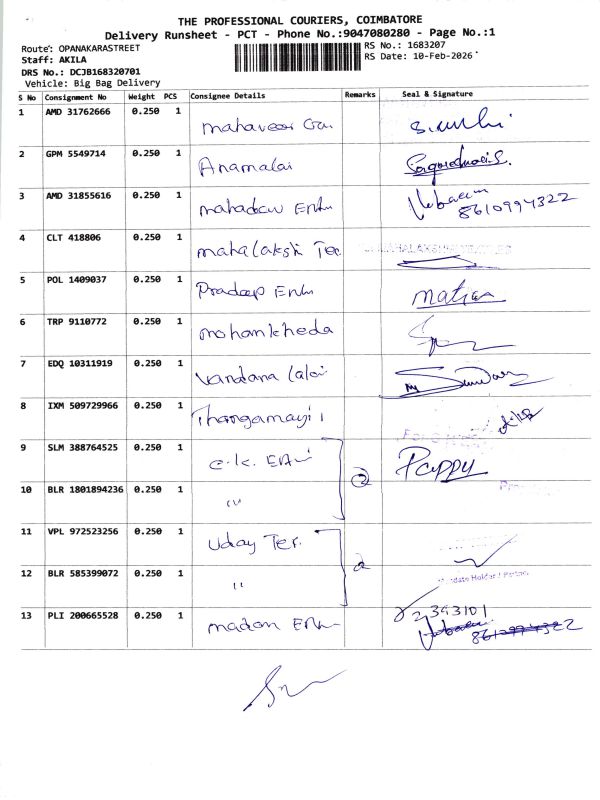 THE PROFESSIONAL COURIERS, COIMBATORE
Delivery Runsheet - PCT - Phone No.:9047080280 - Page No.:1
Route: OPANAKARASTREET
RS No.: 1683207
Staff: AKILA
RS Date: 10-Feb-2026
DRS No.: DCJB168320701
Vehicle: Big Bag Delivery
S No Consignment No Weight PCS Consignee Details Remarks Seal & Signature
1 AMD 31762666 0.250 1 mahaveer
2 GPM 5549714 0.250 1 Anamalai
3 AMD 31855616 0.250 1 mahadev 8610994322
4 CLT 418806 0.250 1 mahalakshi Tec
5 POL 1409037 0.250 1 Pradeep
6 TRP 9110772 0.250 1 mohankheda
7 EDQ 10311919 0.250 1 Vandana
8 IXM 509729966 0.250 1 Thangamayil
9 SLM 388764525 0.250 1 c.k. 2 Pappy
10 BLR 1801894236 0.250 1 "
11 VPL 972523256 0.250 1 Uday Ter. 2
12 BLR 585399072 0.250 1 "
13 PLI 200665528 0.250 1 madan